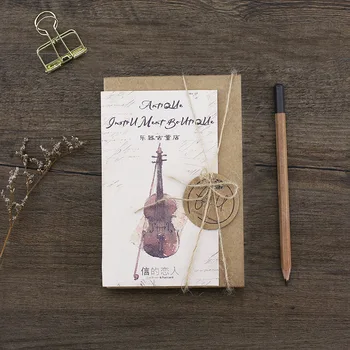 AntiQUe
InstrUMent BoUtiQUe
乐器古董店
信的恋人